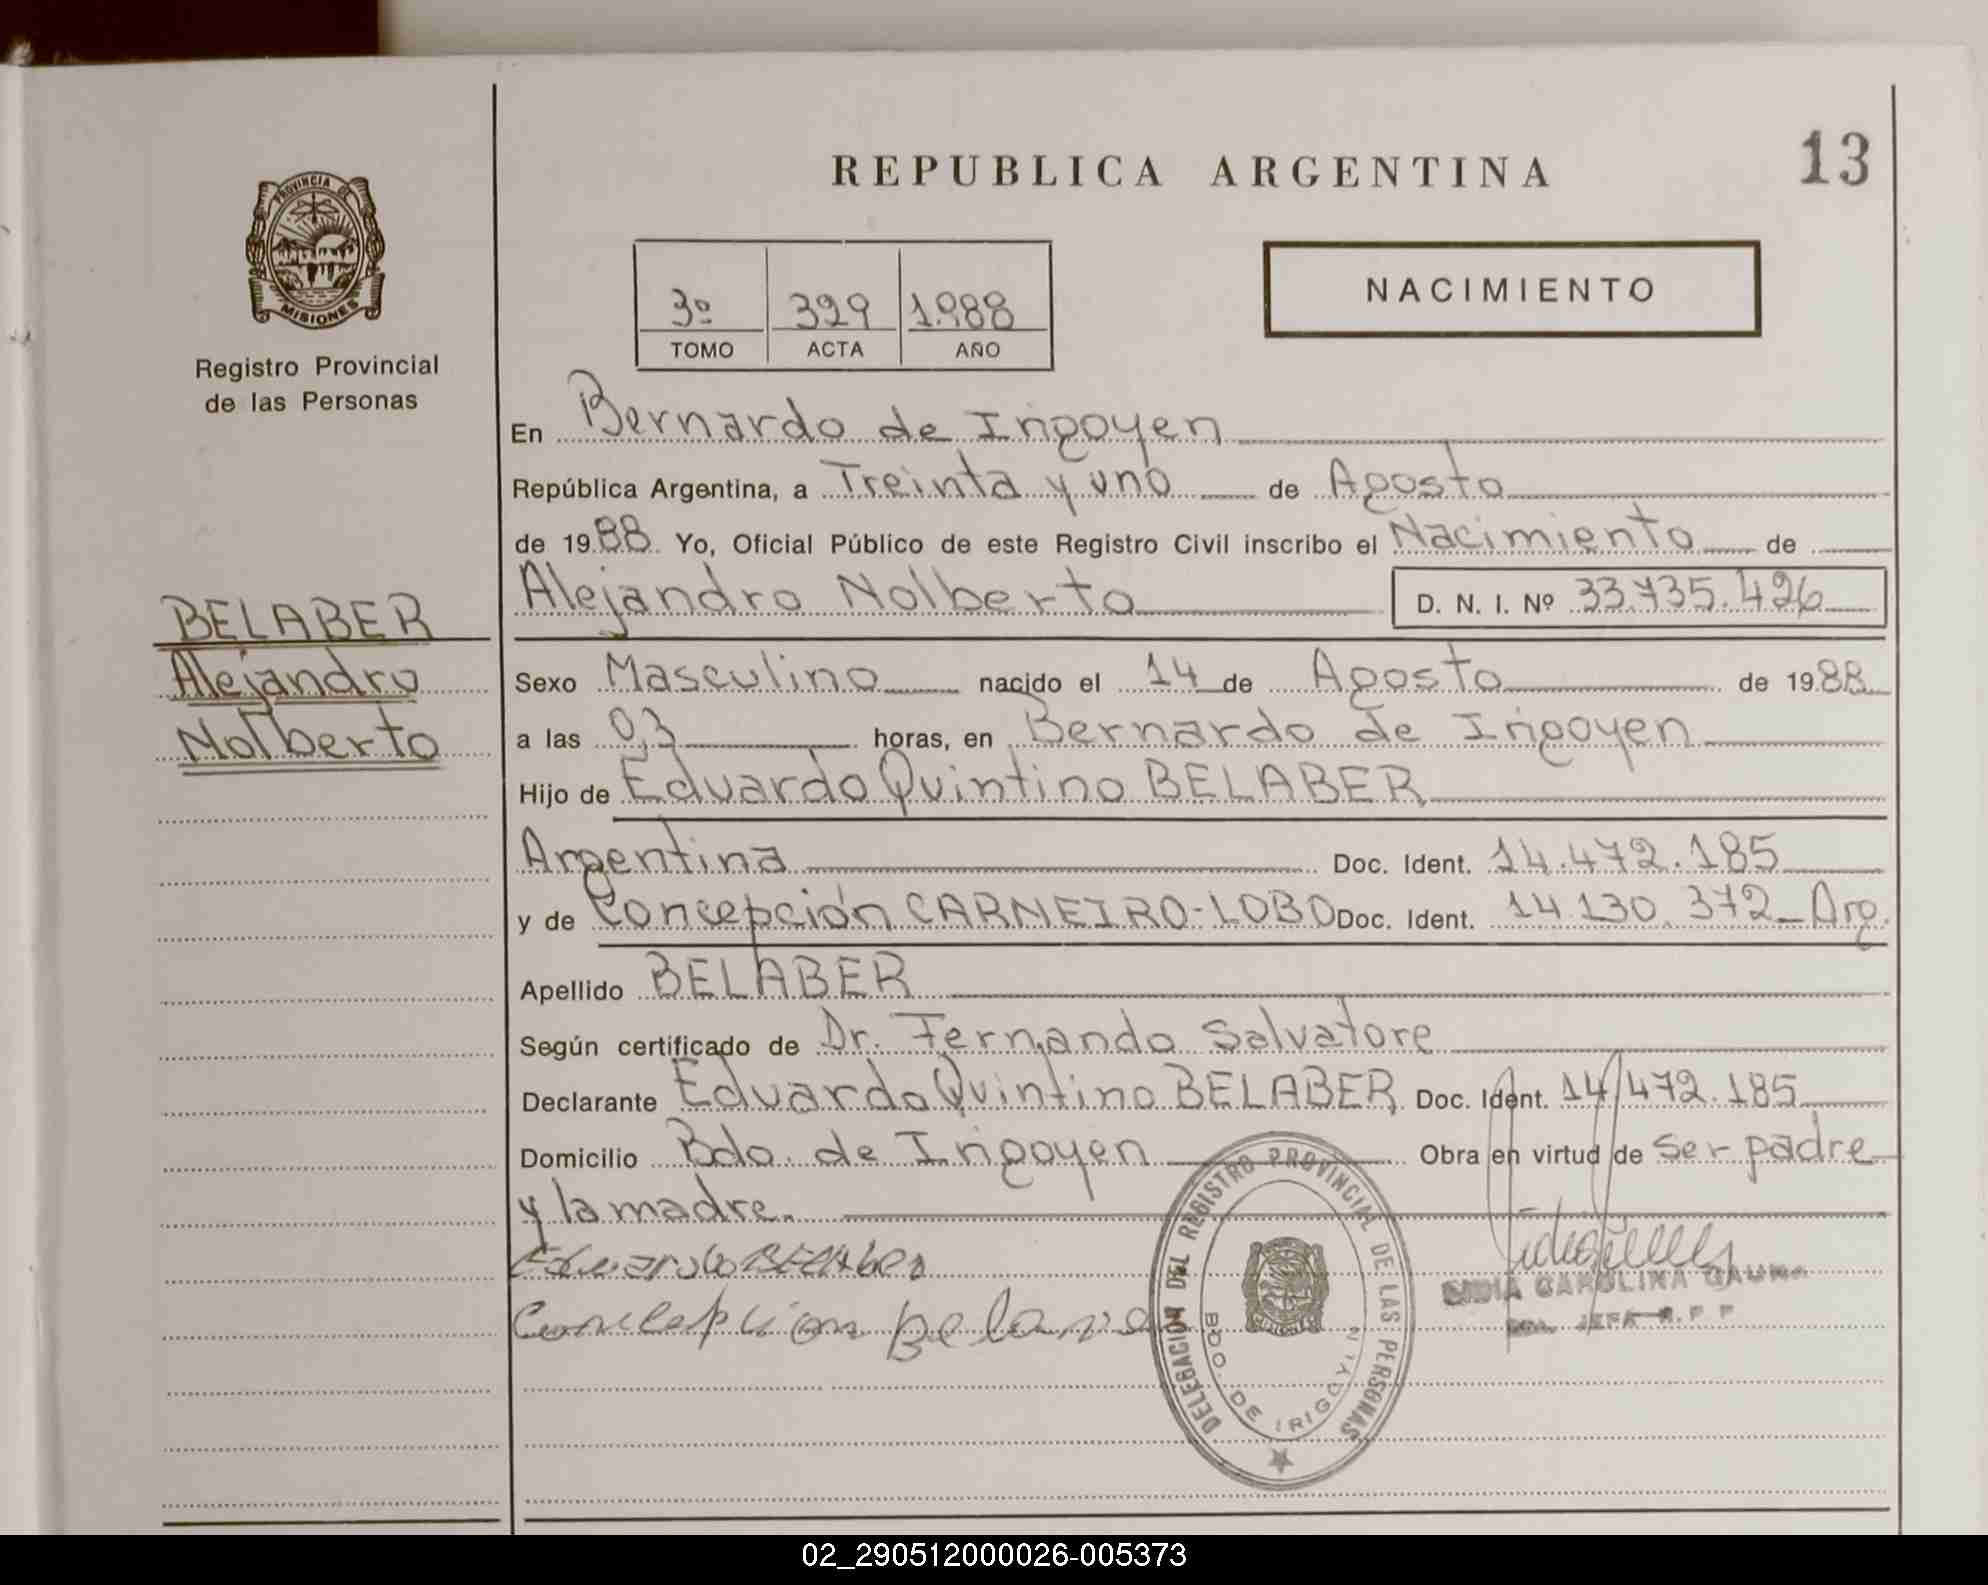 REPUBLICA ARGENTINA
13
PROVINCIA DE
MISIONES
Registro Provincial
de las Personas
NACIMIENTO
3º 329 1.988
TOMO ACTA AÑO
En Bernardo de Irigoyen
República Argentina, a Treinta y uno de Agosto
de 1988. Yo, Oficial Público de este Registro Civil inscribo el Nacimiento de
Alejandro Nolberto D. N. I. Nº 33.735.426
BELABER
Alejandro
Nolberto
Sexo Masculino nacido el 14 de Agosto de 1988
a las 0,3 horas, en Bernardo de Irigoyen
Hijo de Eduardo Quintino BELABER
Argentina Doc. Ident. 14.472.185
y de Concepción CARNEIRO-LOBO Doc. Ident. 14.130.372 Arg.
Apellido BELABER
Según certificado de Dr. Fernando Salvatore
Declarante Eduardo Quintino BELABER Doc. Ident. 14.472.185
Domicilio Bdo. de Irigoyen Obra en virtud de ser padre
y la madre.
Eduardo BELAber
Concepcion
CAROLINA
JEFA R.P.P
DELEGACION DEL REGISTRO PROVINCIAL DE LAS PERSONAS
BDO. DE IRIGOYEN
02_290512000026-005373